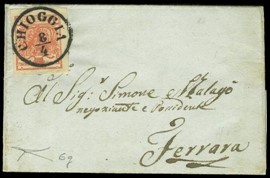 CHIOGGIA
8/4
Al Sig.r Simone
negoziante e Possident
Ferrara
69